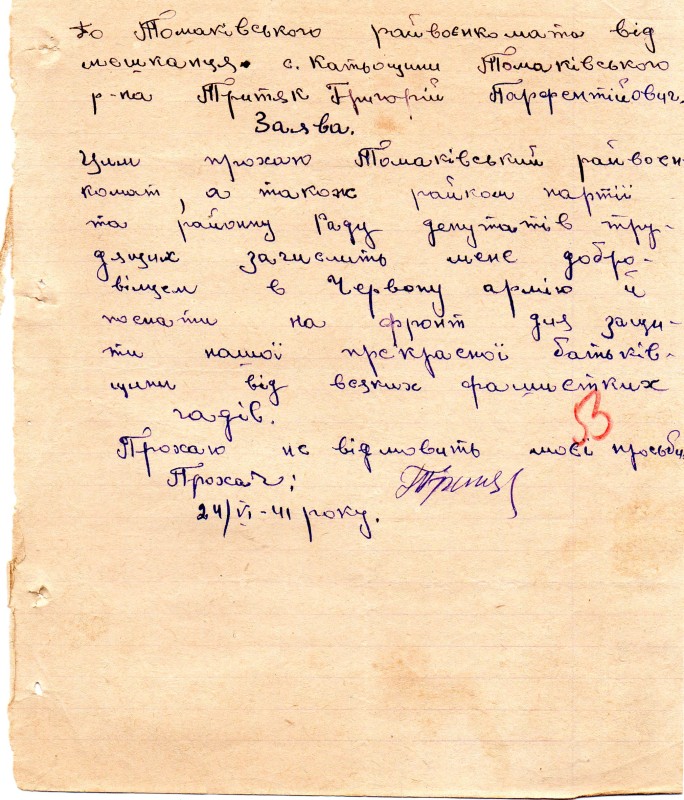 До Томаківського райвоєнкомата від
мешканця с. Катьощини Томаківського
р-на Притяк Григорій Парфентійович.
Заява.
Цим прохаю Томаківський райвоєн-
комат, а також райком партії
та районну Раду депутатів тру-
дящих зачислить мене добро-
вільцем в Червону армію й
послати на фронт для защи-
ти нашої прекрасної батьків-
щини від всяких фашистких
гадів.
53
Прохаю не відмовить моєї просьби,
Прохач:
24/VI-41 року.